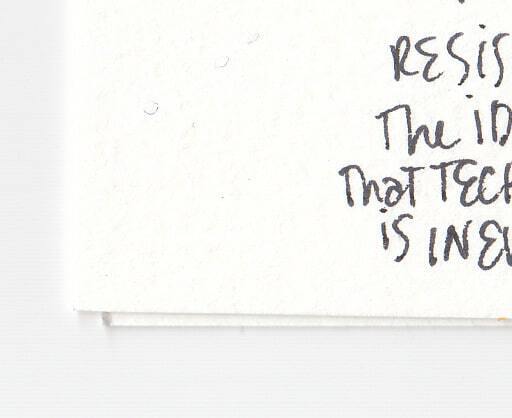 RESIS
The ID
That TECH
is INEV